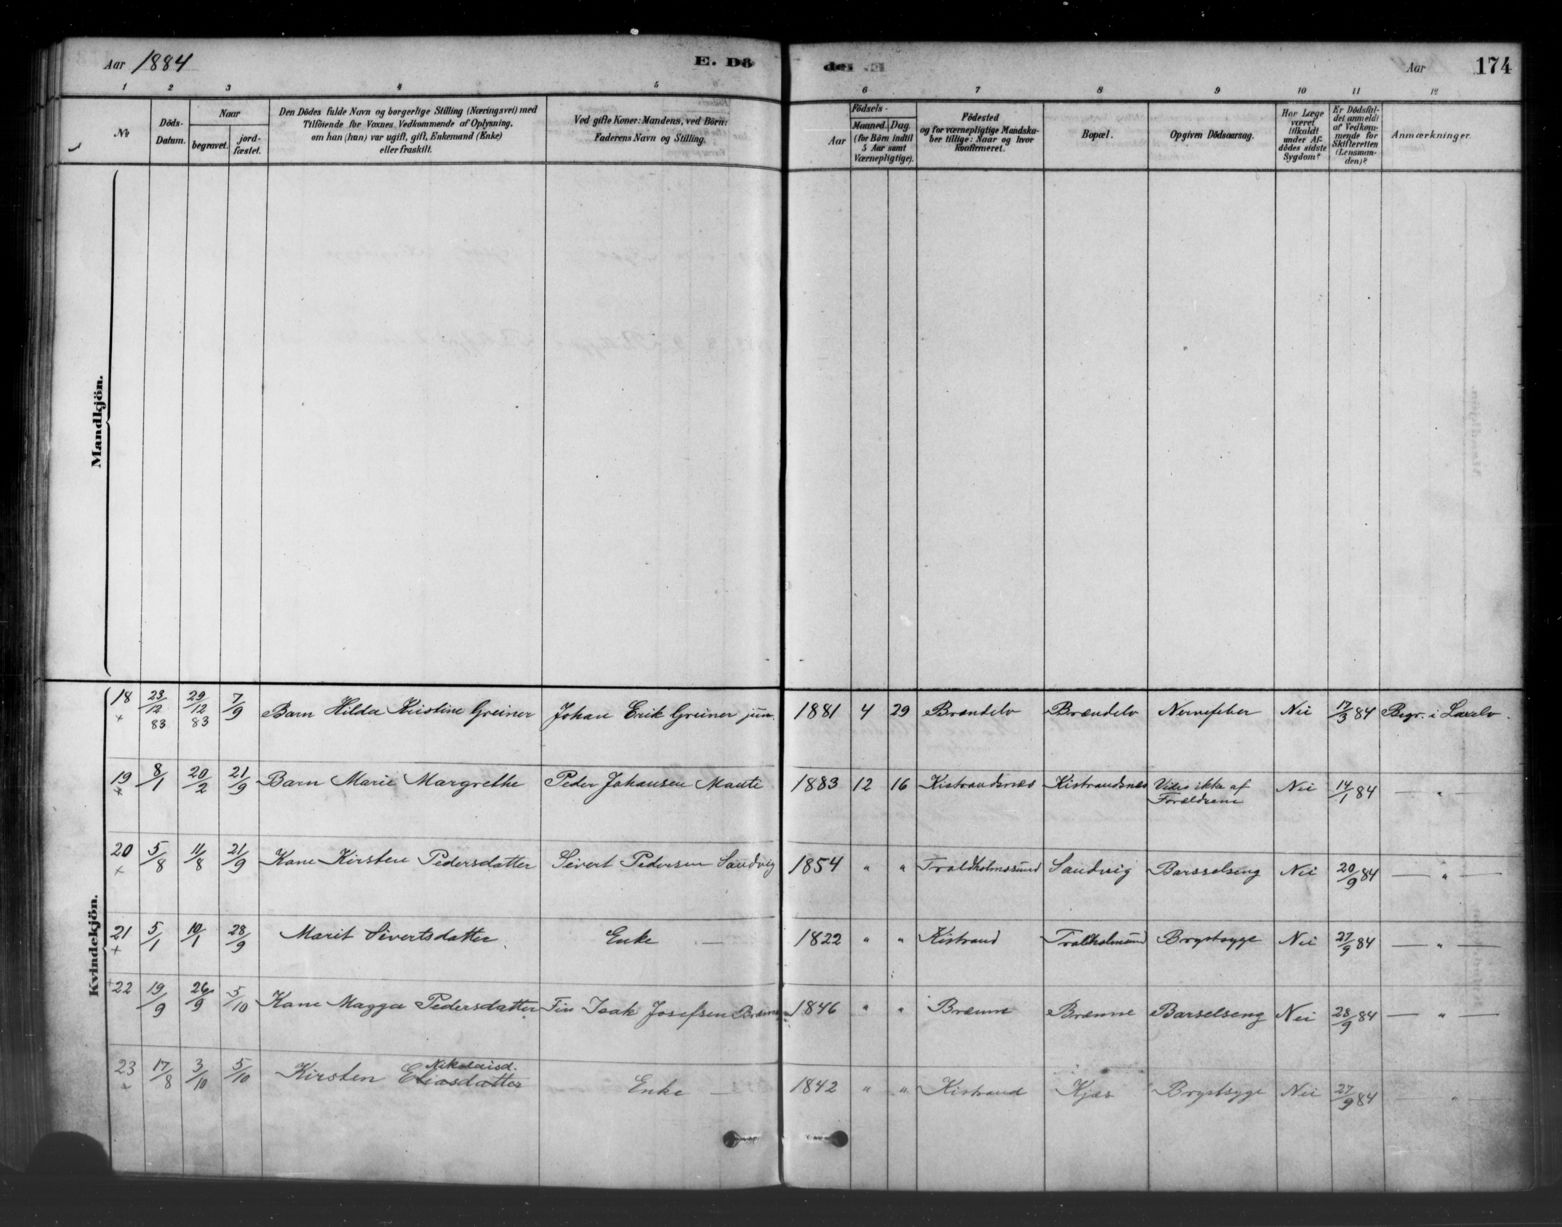 Aar 1884 E. Dö de. Aar 174
1 2 3 4 5 6 7 8 9 10 11 12
No
Döds-Datum.
Naar
begravet.
jord-fæstet.
Den Dödes fulde Navn og borgerlige Stilling (Næringsvei) med
Tilföiende for Voxnes Vedkommende af Oplysning,
om han (hun) var ugift, gift, Enkemand (Enke)
eller fraskilt.
Ved gifte Koner: Mandens, ved Börn:
Faderens Navn og Stilling.
Födsels-
Aar
Maaned. Dag.
(for Börn indtil
5 Aar samt
Værnepligtige).
Födested
og for værnepligtige Mandska-
ber tillige: Naar og hvor
konfirmeret.
Bopæl.
Opgiven Dödsaarsag.
Har Læge
været
tilkaldt
under Af-
dödes sidste
Sygdom?
Er Dödsfal-
det anmeldt
af Vedkom-
mende for
Skifteretten
(Lensman-
den)?
Anmærkninger.
Mandkjön.
Kvindekjön.
18 23/12 83 29/12 83 7/9 Barn Hilda Kristine Greiner Johan Erik Greiner jun. 1881 4 29 Brændelv Brændelv Nervefeber Nei 17/3 84 Begr. i Laxelv.
19 8/1 20/2 21/9 Barn Marie Margrethe Peder Johansen Manti 1883 12 16 Kistrandsnæs Kistrandsnæs Vides ikke af Forældrene Nei 14/1 84 — " —
20 5/8 11/8 21/9 Kone Kirsten Pedersdatter Sivert Pedersen Sandvig 1854 " " Troldholmsund Sandvig Barsselseng Nei 20/9 84 — " —
21 5/1 10/1 28/9 Marit Sivertsdatter. Enke — 1822 " " Kistrand Troldholmsund Brystsyge Nei 27/9 84 — " —
22 19/9 26/9 5/10 Kone Magga Pedersdatter Fin Isak Josefsen Brænne 1846 " " Brænne Brænne Barselseng Nei 28/9 84 — " —
23 17/8 3/10 5/10 Kirsten Eliasdatter Nikolaisd. Enke — 1842 " " Kistrand Kjæs Brystsyge Nei 27/9 84 — " —